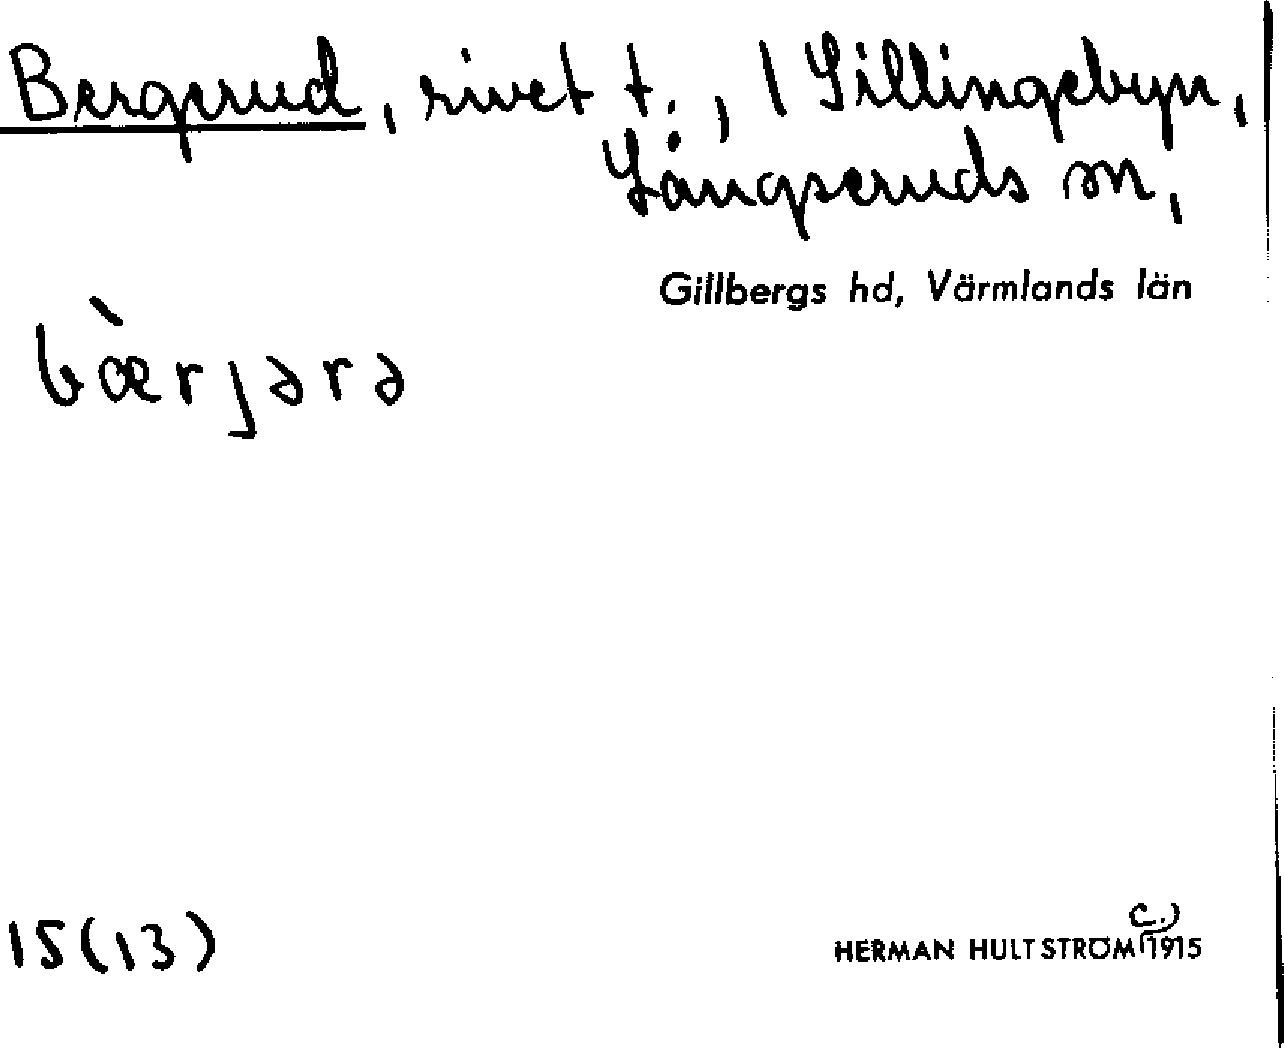 Bergerud, rivet t., / Gillingebyn,
Långseruds sn,
Gillbergs hd, Värmlands län
bæ̀rjərə
15(13)
(c.)
HERMAN HULTSTRÖM 1915